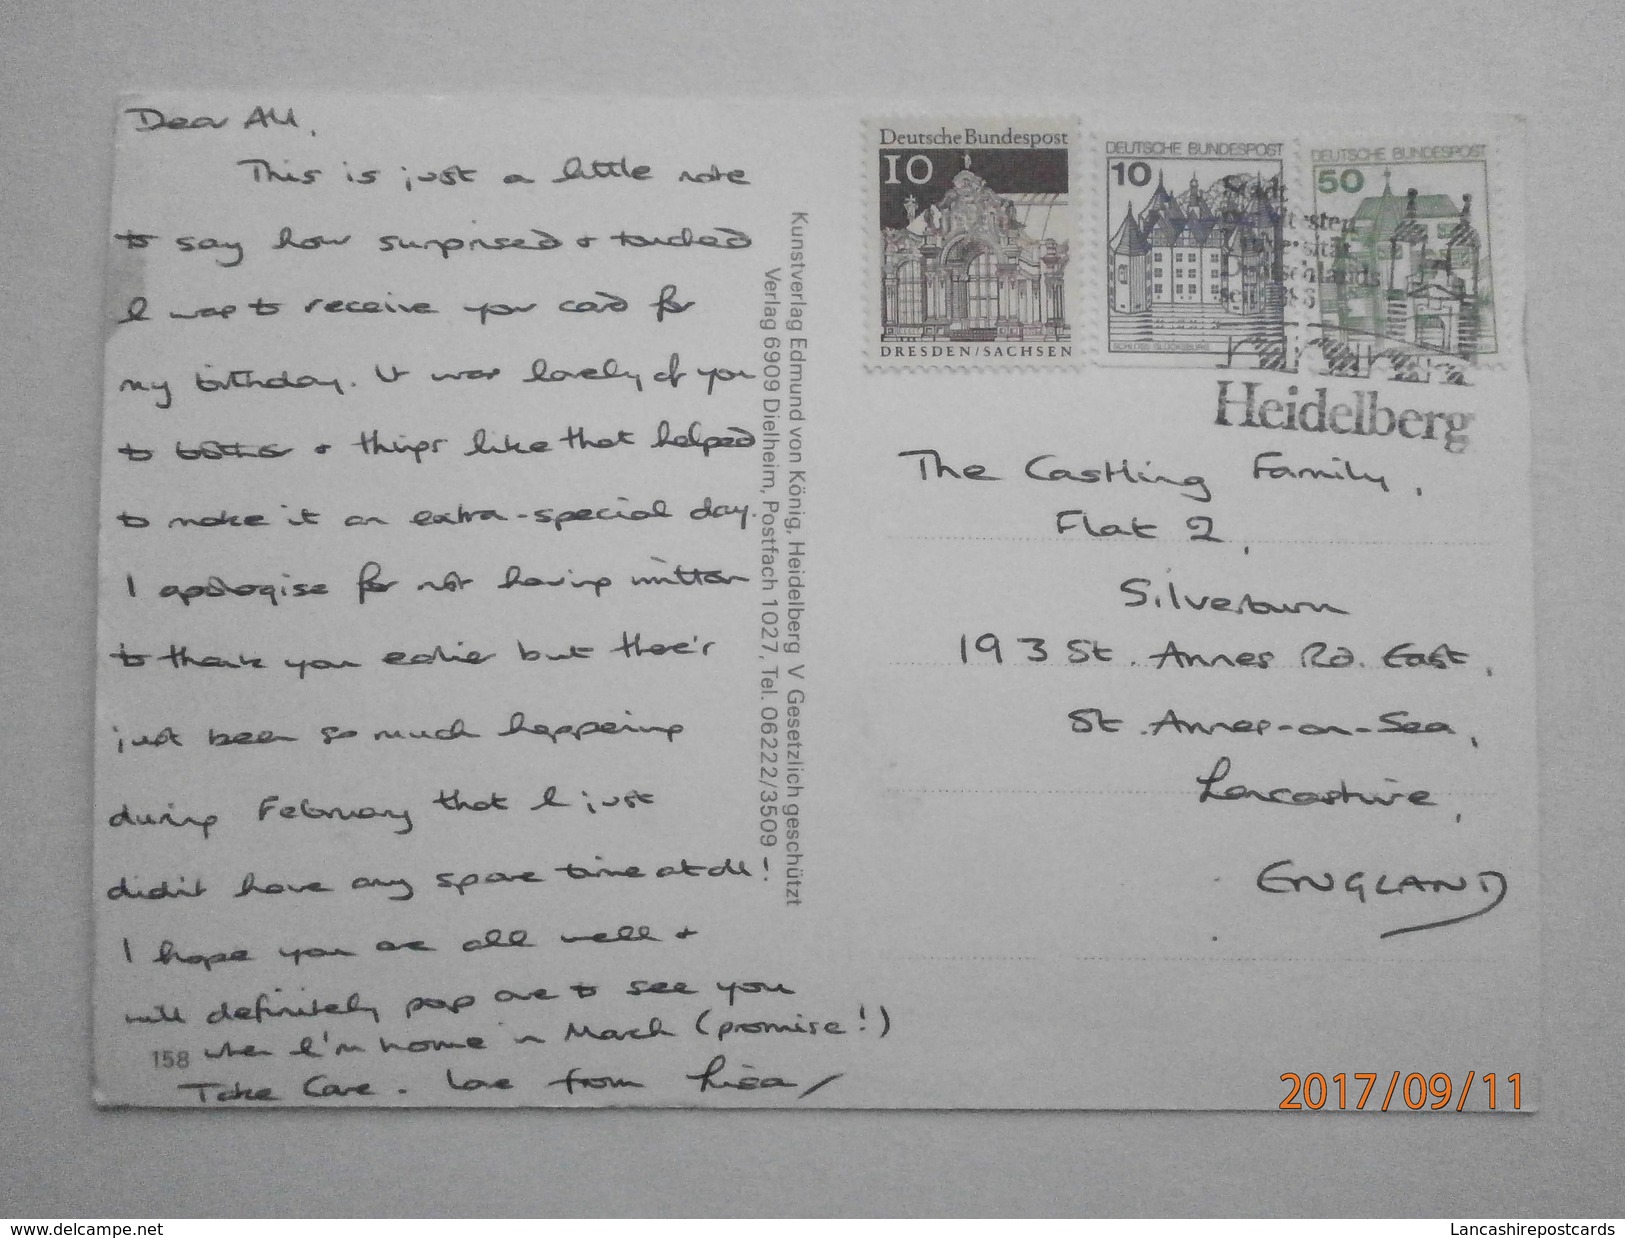 Dear All,
This is just a little note
to say how surprised + touched
I was to receive your card for
my birthday. It was lovely of you
to bother + things like that helped
to make it an extra-special day.
I apologise for not having written
to thank you earlier but there's
just been so much happening
during February that I just
didn't have any spare time at all!
I hope you are all well +
will definitely pop over to see you
when I'm home in March (promise!)
158
Take Care. Love from Lisa
Kunstverlag Edmund von König, Heidelberg V Gesetzlich geschützt
Verlag 6909 Dielheim, Postfach 1027, Tel. 06222/3509
Deutsche Bundespost
10
DRESDEN/SACHSEN
DEUTSCHE BUNDESPOST
10
SCHLOSS GLÜCKSBURG
DEUTSCHE BUNDESPOST
50
Stadt
der ältesten
Universität
Deutschlands
seit 1386
Heidelberg
The Castling Family,
Flat 2,
Silverburn
193 St. Annes Rd. East,
St. Annes-on-Sea,
Lancashire,
ENGLAND
2017/09/11
www.delcampe.net
Lancashirepostcards